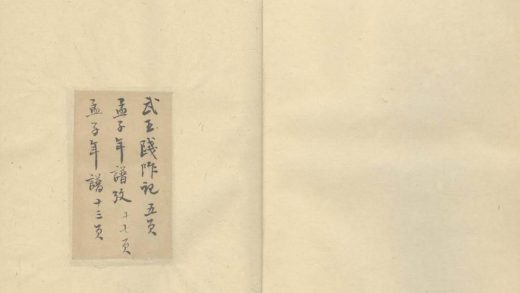 武王踐阼記 五頁
孟子年譜攷 十七頁
孟子年譜 十三頁